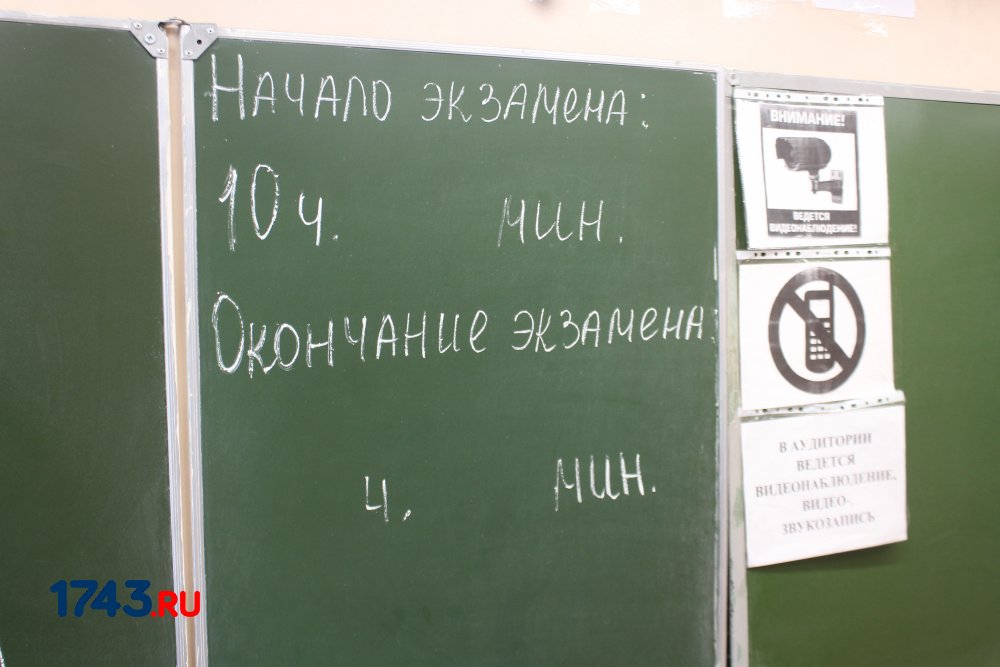 Начало экзамена:
10 ч. мин.
Окончание экзамена:
ч. мин.
ВНИМАНИЕ!
ВЕДЕТСЯ
ВИДЕОНАБЛЮДЕНИЕ!
В АУДИТОРИИ
ВЕДЕТСЯ
ВИДЕОНАБЛЮДЕНИЕ,
ВИДЕО-,
ЗВУКОЗАПИСЬ
1743.RU